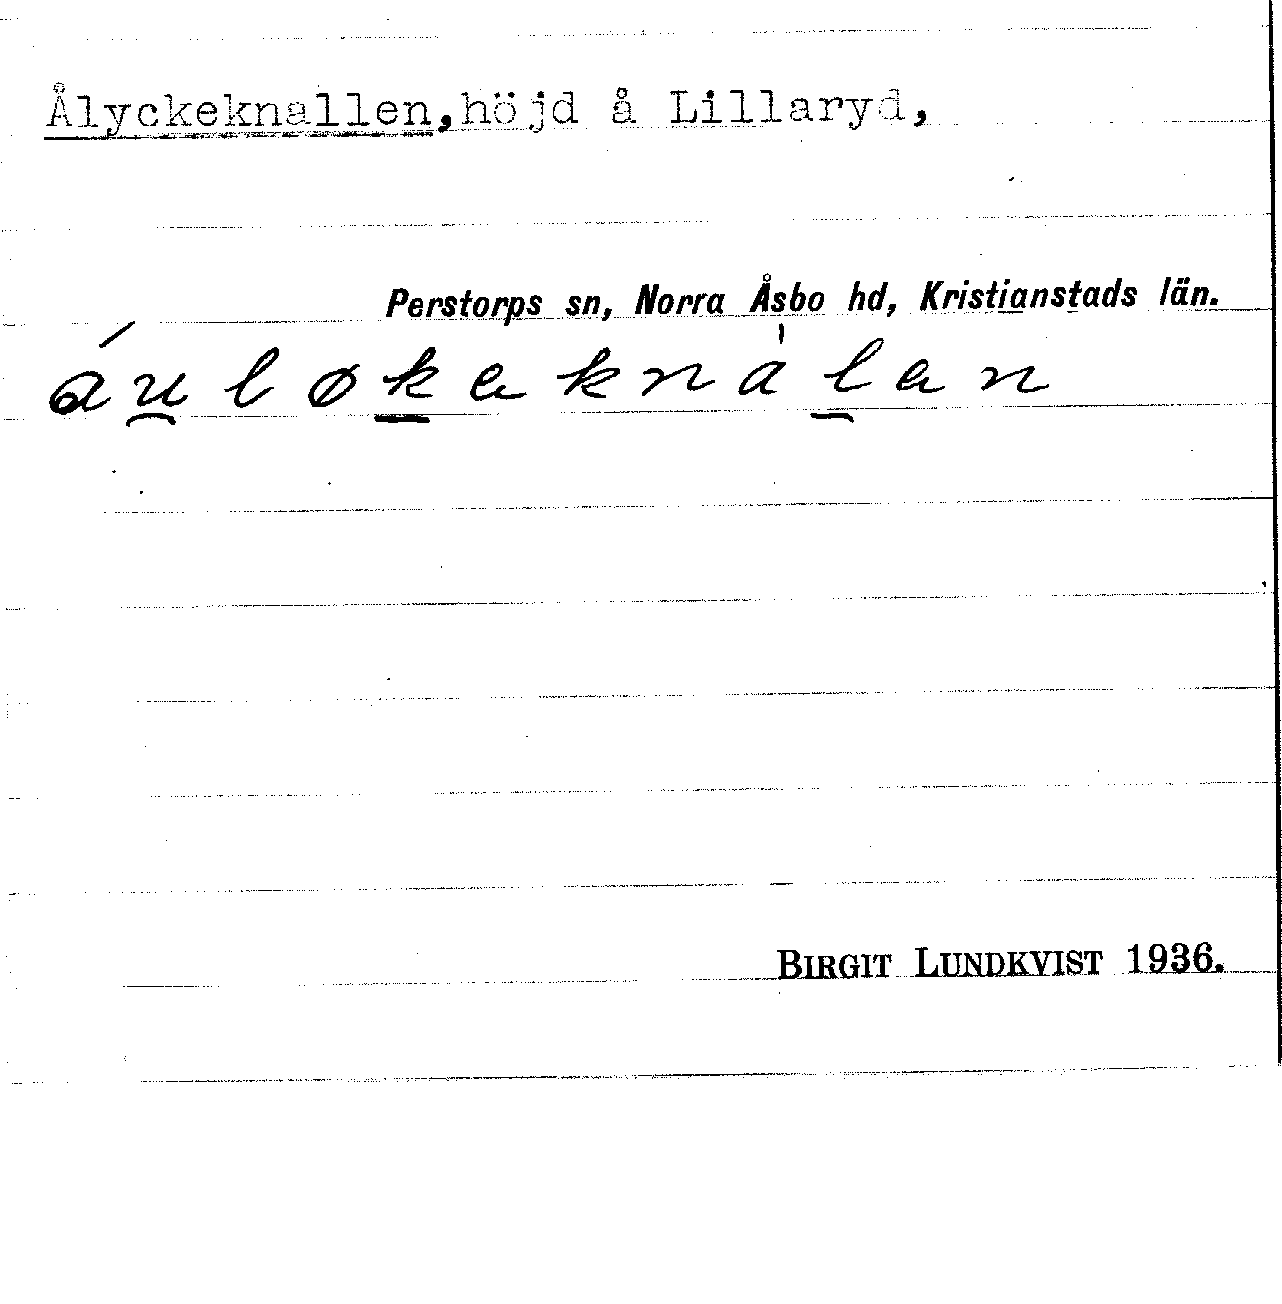 Ålyckeknallen, höjd å Lillaryd,
Perstorps sn, Norra Åsbo hd, Kristianstads län.
áu̯løk̠ekknàl̯an
BIRGIT LUNDKVIST 1936.